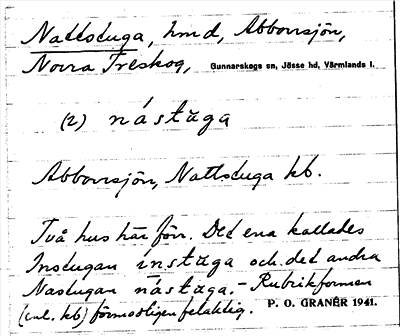 Nattstuga, hmd, Abborrsjön,
Norra Treskog, Gunnarskogs sn, Jösse hd, Värmlands l.
(2) nástuga
Abborrsjön, Nattstuga kb.
Två hus här förr. Det ena kallades
Instugan ínstuga och det andra
Nastugan nástuga. - Rubrikformen
(enl. kb) förmodligen felaktig. P. O. GRANÉR 1941.